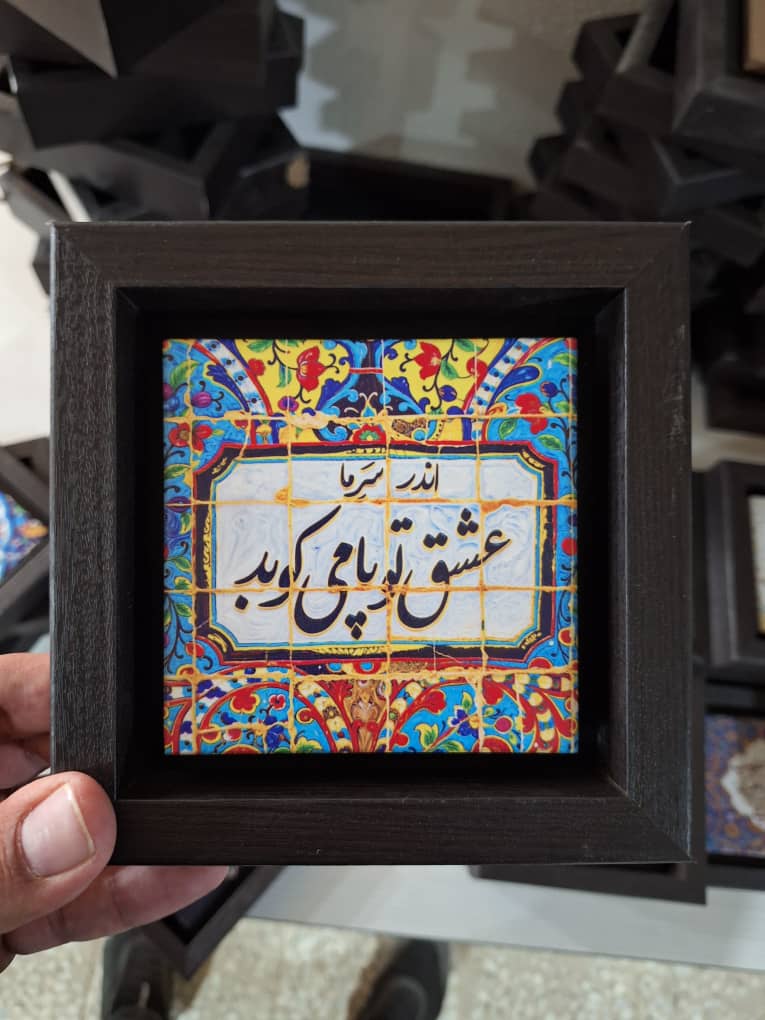 اندر سَرِما
عشق تو پا می کوبد